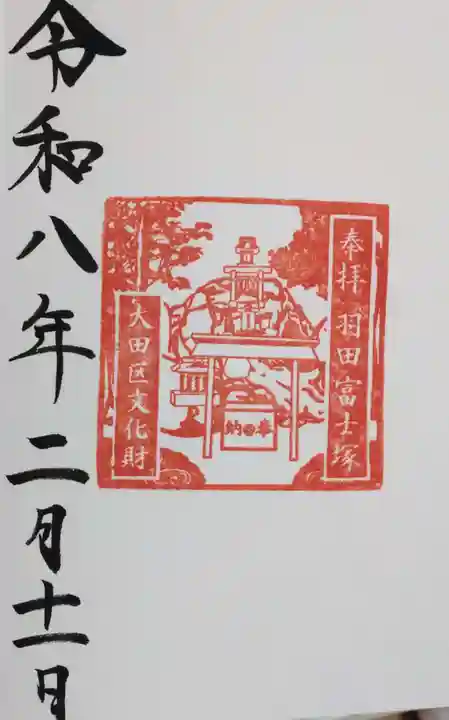 奉拝 羽田富士塚
奉納
大田区文化財
令和八年二月十一日